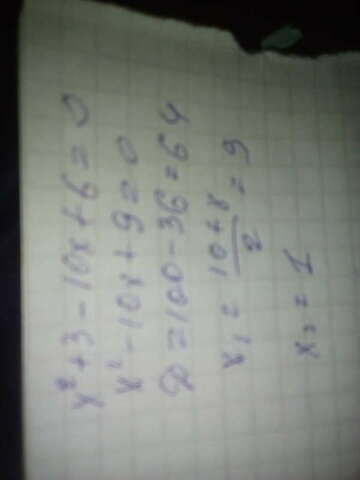 x² + 3 - 10x + 6 = 0
x² - 10x + 9 = 0
D = 100 - 36 = 64
x₁ = (10 + 8)/2 = 9
x₂ = 1